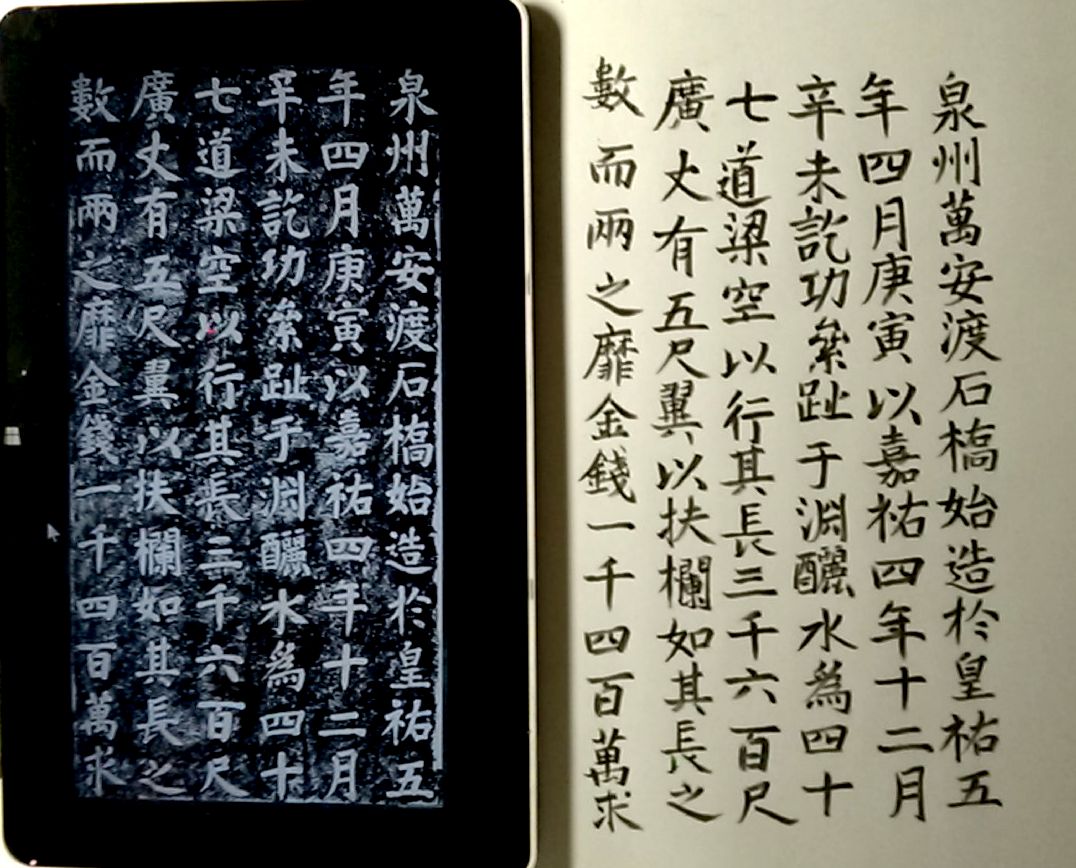 泉州萬安渡石橋始造於皇祐五
年四月庚寅以嘉祐四年十二月
辛未訖功絫趾于淵釃水爲四十
七道梁空以行其長三千六百尺
廣丈有五尺翼以扶欄如其長之
數而兩之靡金錢一千四百萬求
泉州萬安渡石橋始造於皇祐五
年四月庚寅以嘉祐四年十二月
辛未訖功絫趾于淵釃水爲四十
七道梁空以行其長三千六百尺
廣丈有五尺翼以扶欄如其長之
數而兩之靡金錢一千四百萬求